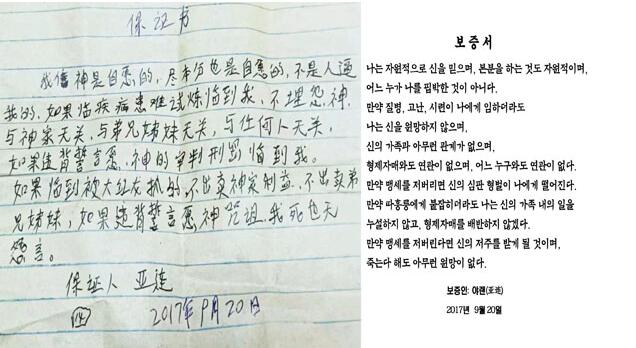 保证书
我信神是自愿的，尽本分也是自愿的，不是人逼
我的，如果临疾病患难试炼临到我，不埋怨神，
与神家无关，与弟兄姊妹无关，与任何人无关，
如果违背誓言愿，神的审判刑罚临到我。
如果临到被大红龙抓的，不出卖神家利益，不出卖弟
兄姊妹，如果违背誓言愿神咒诅，我死也无
怨言。
保证人 亚连
2017年9月20日
보증서
나는 자원적으로 신을 믿으며, 본분을 하는 것도 자원적이며,
어느 누가 나를 핍박한 것이 아니다.
만약 질병, 고난, 시련이 나에게 임하더라도
나는 신을 원망하지 않으며,
신의 가족과 아무런 관계가 없으며,
형제자매와도 연관이 없으며, 어느 누구와도 연관이 없다.
만약 맹세를 저버리면 신의 심판 형벌이 나에게 떨어진다.
만약 따훙룽에게 붙잡히더라도 나는 신의 가족 내의 일을
누설하지 않고, 형제자매를 배반하지 않겠다.
만약 맹세를 저버린다면 신의 저주를 받게 될 것이며,
죽는다 해도 아무런 원망이 없다.
보증인: 야랜(亚连)
2017년 9월 20일